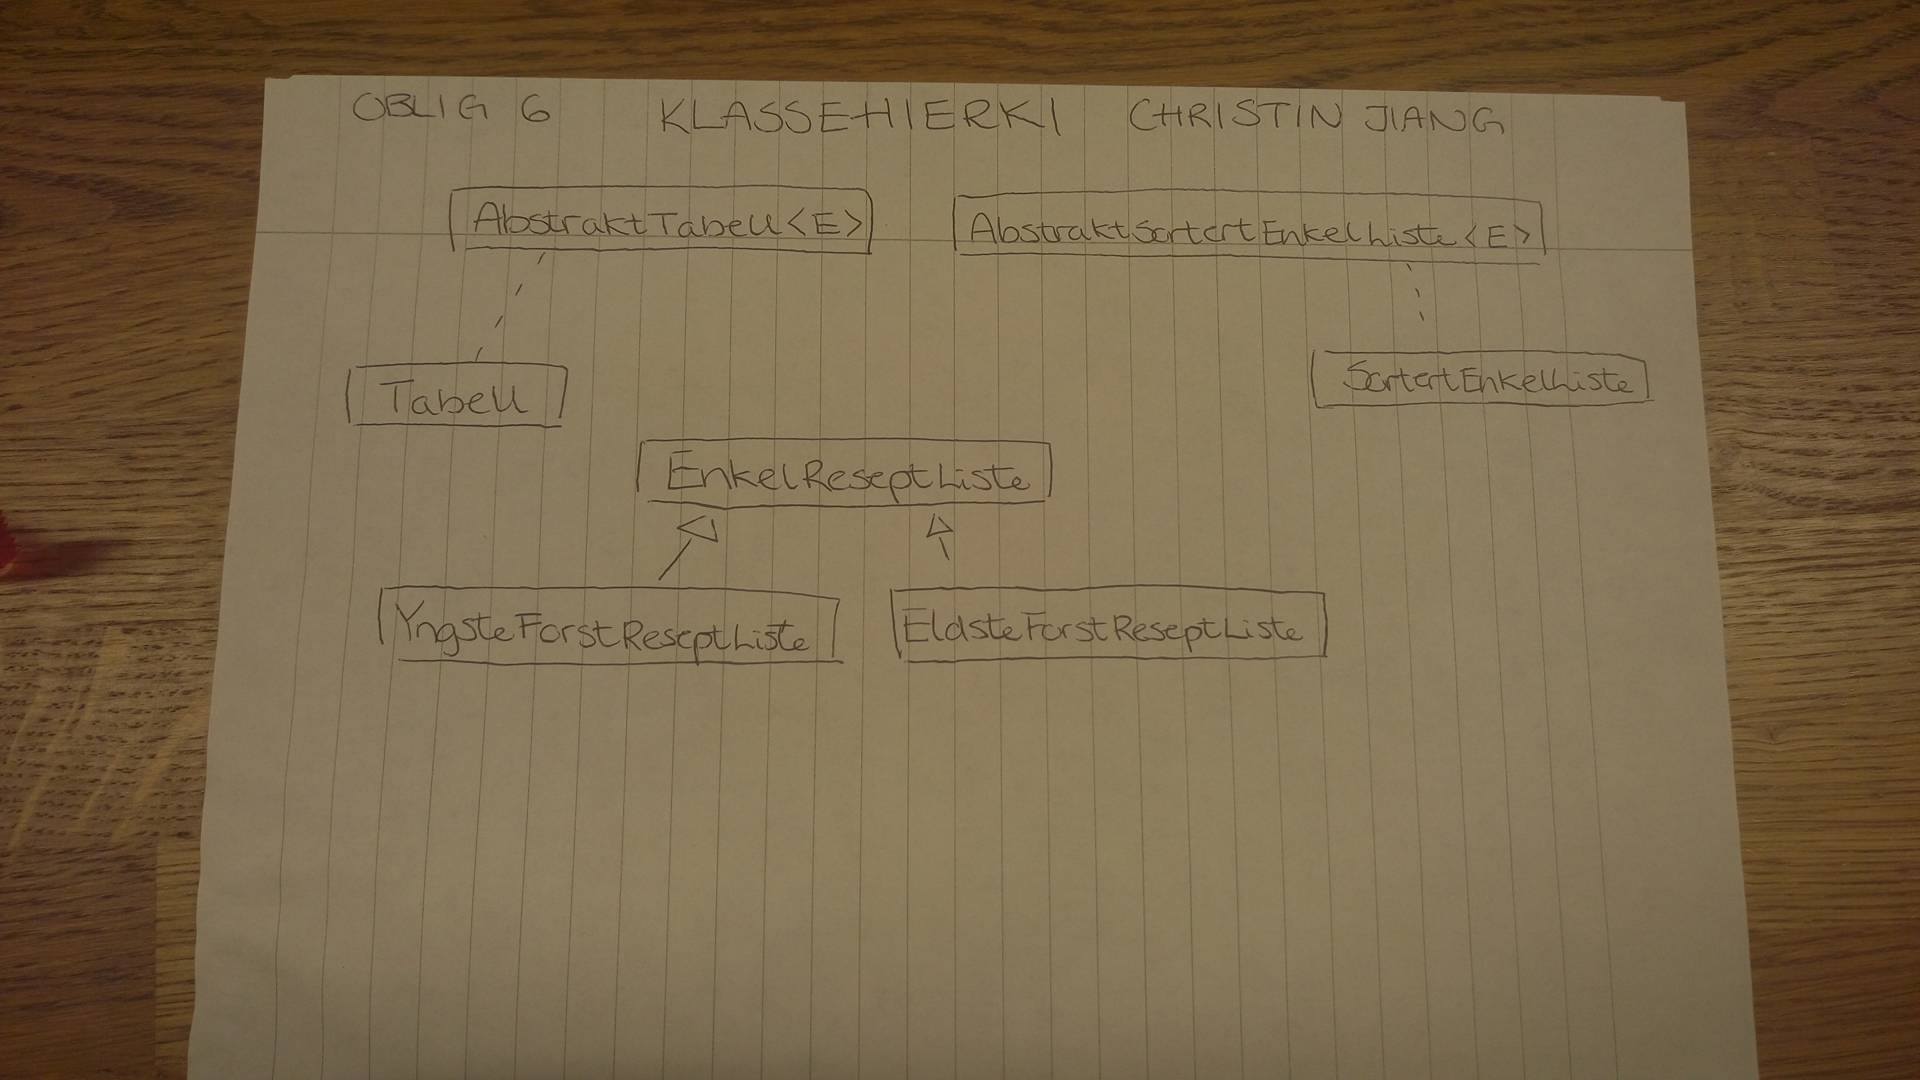 OBLIG 6 KLASSEHIERKI CHRISTIN JIANG
AbstraktTabell<E> AbstraktSortertEnkelListe<E>
Tabell SortertEnkelListe
EnkelReseptListe
YngsteForstReseptListe EldsteForstReseptListe